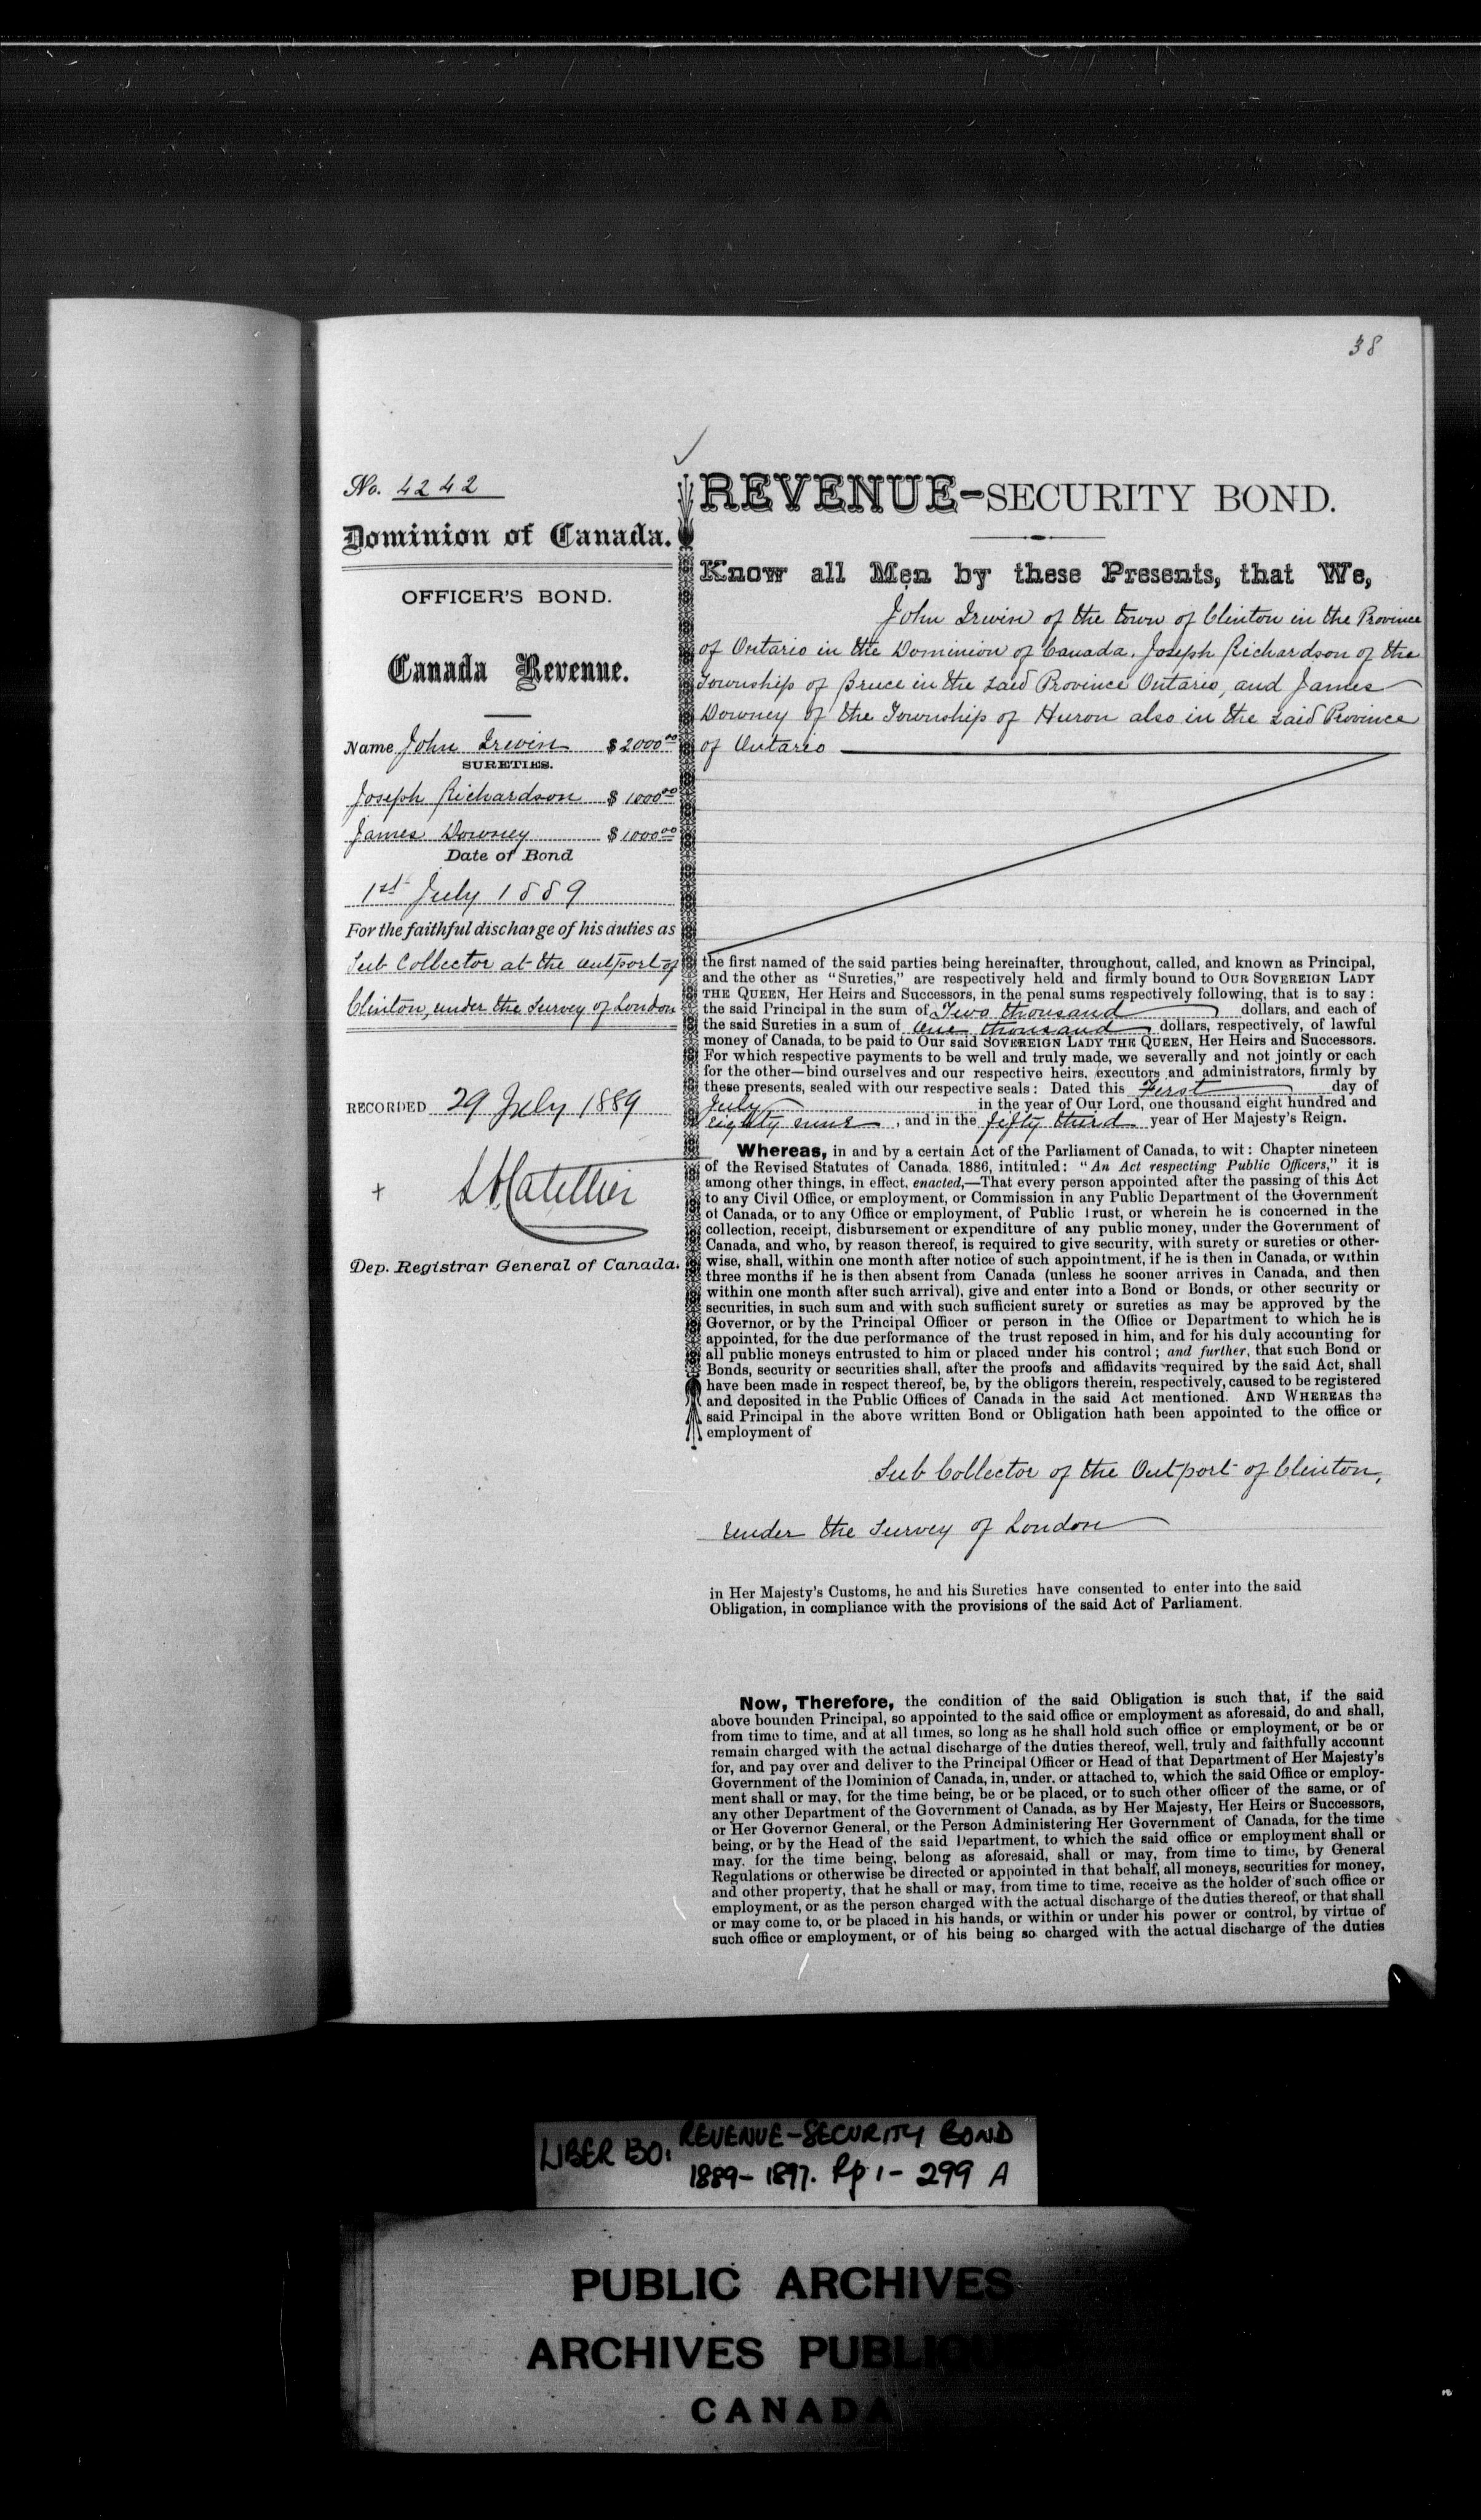 38
No. 4242
Dominion of Canada.
OFFICER'S BOND.
Canada Revenue.
Name John Irwin $2000.00
SURETIES.
Joseph Richardson $1000.00
James Downey $1000.00
Date of Bond
1st July 1889
For the faithful discharge of his duties as
Sub Collector at the outport of
Clinton, under the Survey of London
RECORDED 29 July 1889
+
Dep. Registrar General of Canada.
REVENUE-SECURITY BOND.
Know all Men by these Presents, that We,
John Irwin of the town of Clinton in the Province
of Ontario in the Dominion of Canada, Joseph Richardson of the
Township of Bruce in the said Province Ontario, and James
Downey of the Township of Huron also in the said Province
of Ontario
the first named of the said parties being hereinafter, throughout, called, and known as Principal,
and the other as "Sureties," are respectively held and firmly bound to OUR SOVEREIGN LADY
THE QUEEN, Her Heirs and Successors, in the penal sums respectively following, that is to say :
the said Principal in the sum of Two thousand dollars, and each of
the said Sureties in a sum of One thousand dollars, respectively, of lawful
money of Canada, to be paid to Our said SOVEREIGN LADY THE QUEEN, Her Heirs and Successors.
For which respective payments to be well and truly made, we severally and not jointly or each
for the other—bind ourselves and our respective heirs, executors and administrators, firmly by
these presents, sealed with our respective seals : Dated this First day of
July in the year of Our Lord, one thousand eight hundred and
eighty nine, and in the fifty third year of Her Majesty's Reign.
Whereas, in and by a certain Act of the Parliament of Canada, to wit : Chapter nineteen
of the Revised Statutes of Canada, 1886, intituled : "An Act respecting Public Officers," it is
among other things, in effect, enacted,—That every person appointed after the passing of this Act
to any Civil Office, or employment, or Commission in any Public Department of the Government
of Canada, or to any Office or employment, of Public Trust, or wherein he is concerned in the
collection, receipt, disbursement or expenditure of any public money, under the Government of
Canada, and who, by reason thereof, is required to give security, with surety or sureties or other-
wise, shall, within one month after notice of such appointment, if he is then in Canada, or within
three months if he is then absent from Canada (unless he sooner arrives in Canada, and then
within one month after such arrival), give and enter into a Bond or Bonds, or other security or
securities, in such sum and with such sufficient surety or sureties as may be approved by the
Governor, or by the Principal Officer or person in the Office or Department to which he is
appointed, for the due performance of the trust reposed in him, and for his duly accounting for
all public moneys entrusted to him or placed under his control ; and further, that such Bond or
Bonds, security or securities shall, after the proofs and affidavits required by the said Act, shall
have been made in respect thereof, be, by the obligors therein, respectively, caused to be registered
and deposited in the Public Offices of Canada in the said Act mentioned. AND WHEREAS the
said Principal in the above written Bond or Obligation hath been appointed to the office or
employment of
Sub Collector of the Outport of Clinton,
under the Survey of London
in Her Majesty's Customs, he and his Sureties have consented to enter into the said
Obligation, in compliance with the provisions of the said Act of Parliament.
Now, Therefore, the condition of the said Obligation is such that, if the said
above bounden Principal, so appointed to the said office or employment as aforesaid, do and shall,
from time to time, and at all times, so long as he shall hold such office or employment, or be or
remain charged with the actual discharge of the duties thereof, well, truly and faithfully account
for, and pay over and deliver to the Principal Officer or Head of that Department of Her Majesty's
Government of the Dominion of Canada, in, under, or attached to, which the said Office or employ-
ment shall or may, for the time being, be or be placed, or to such other officer of the same, or of
any other Department of the Government of Canada, as by Her Majesty, Her Heirs or Successors,
or Her Governor General, or the Person Administering Her Government of Canada, for the time
being, or by the Head of the said Department, to which the said office or employment shall or
may, for the time being, belong as aforesaid, shall or may, from time to time, by General
Regulations or otherwise be directed or appointed in that behalf, all moneys, securities for money,
and other property, that he shall or may, from time to time, receive as the holder of such office or
employment, or as the person charged with the actual discharge of the duties thereof, or that shall
or may come to, or be placed in his hands, or within or under his power or control, by virtue of
such office or employment, or of his being so charged with the actual discharge of the duties
LIBER 130. REVENUE-SECURITY BOND
1889-1897. Pp 1-299 A
PUBLIC ARCHIVES
ARCHIVES PUBLIQUES
CANADA